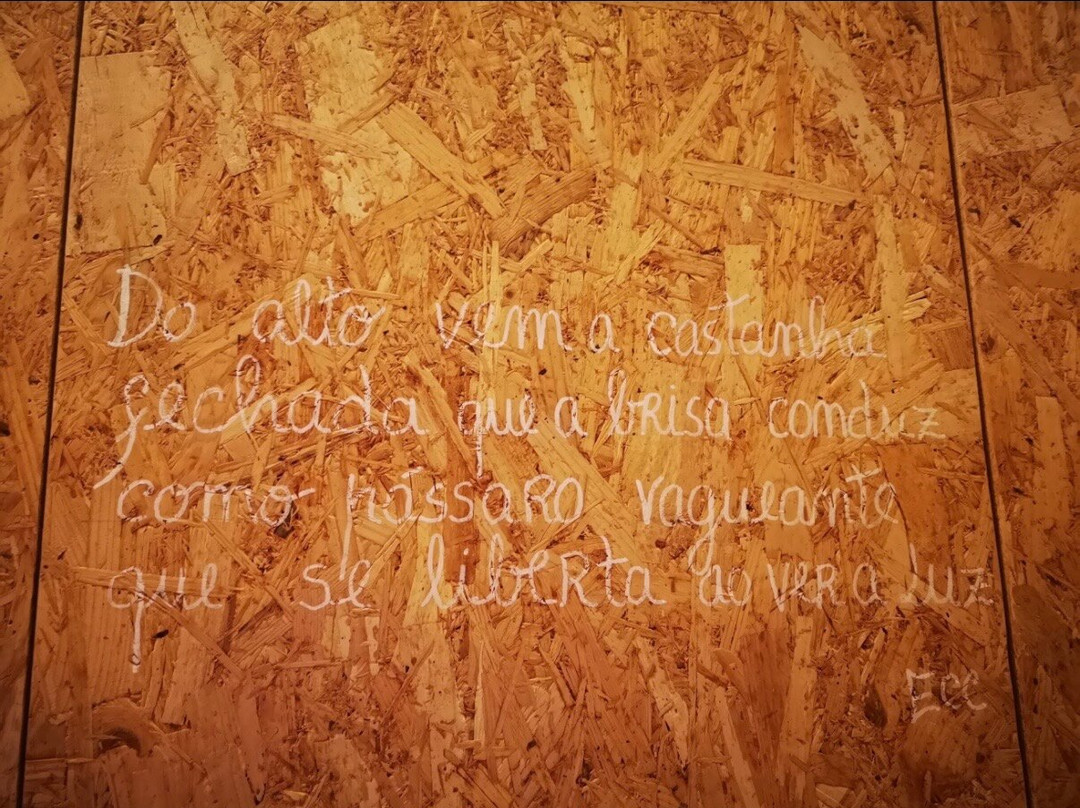 Do alto vem a castanha
fechada que a brisa conduz
como pássaro vagueante
que se liberta ao ver a luz